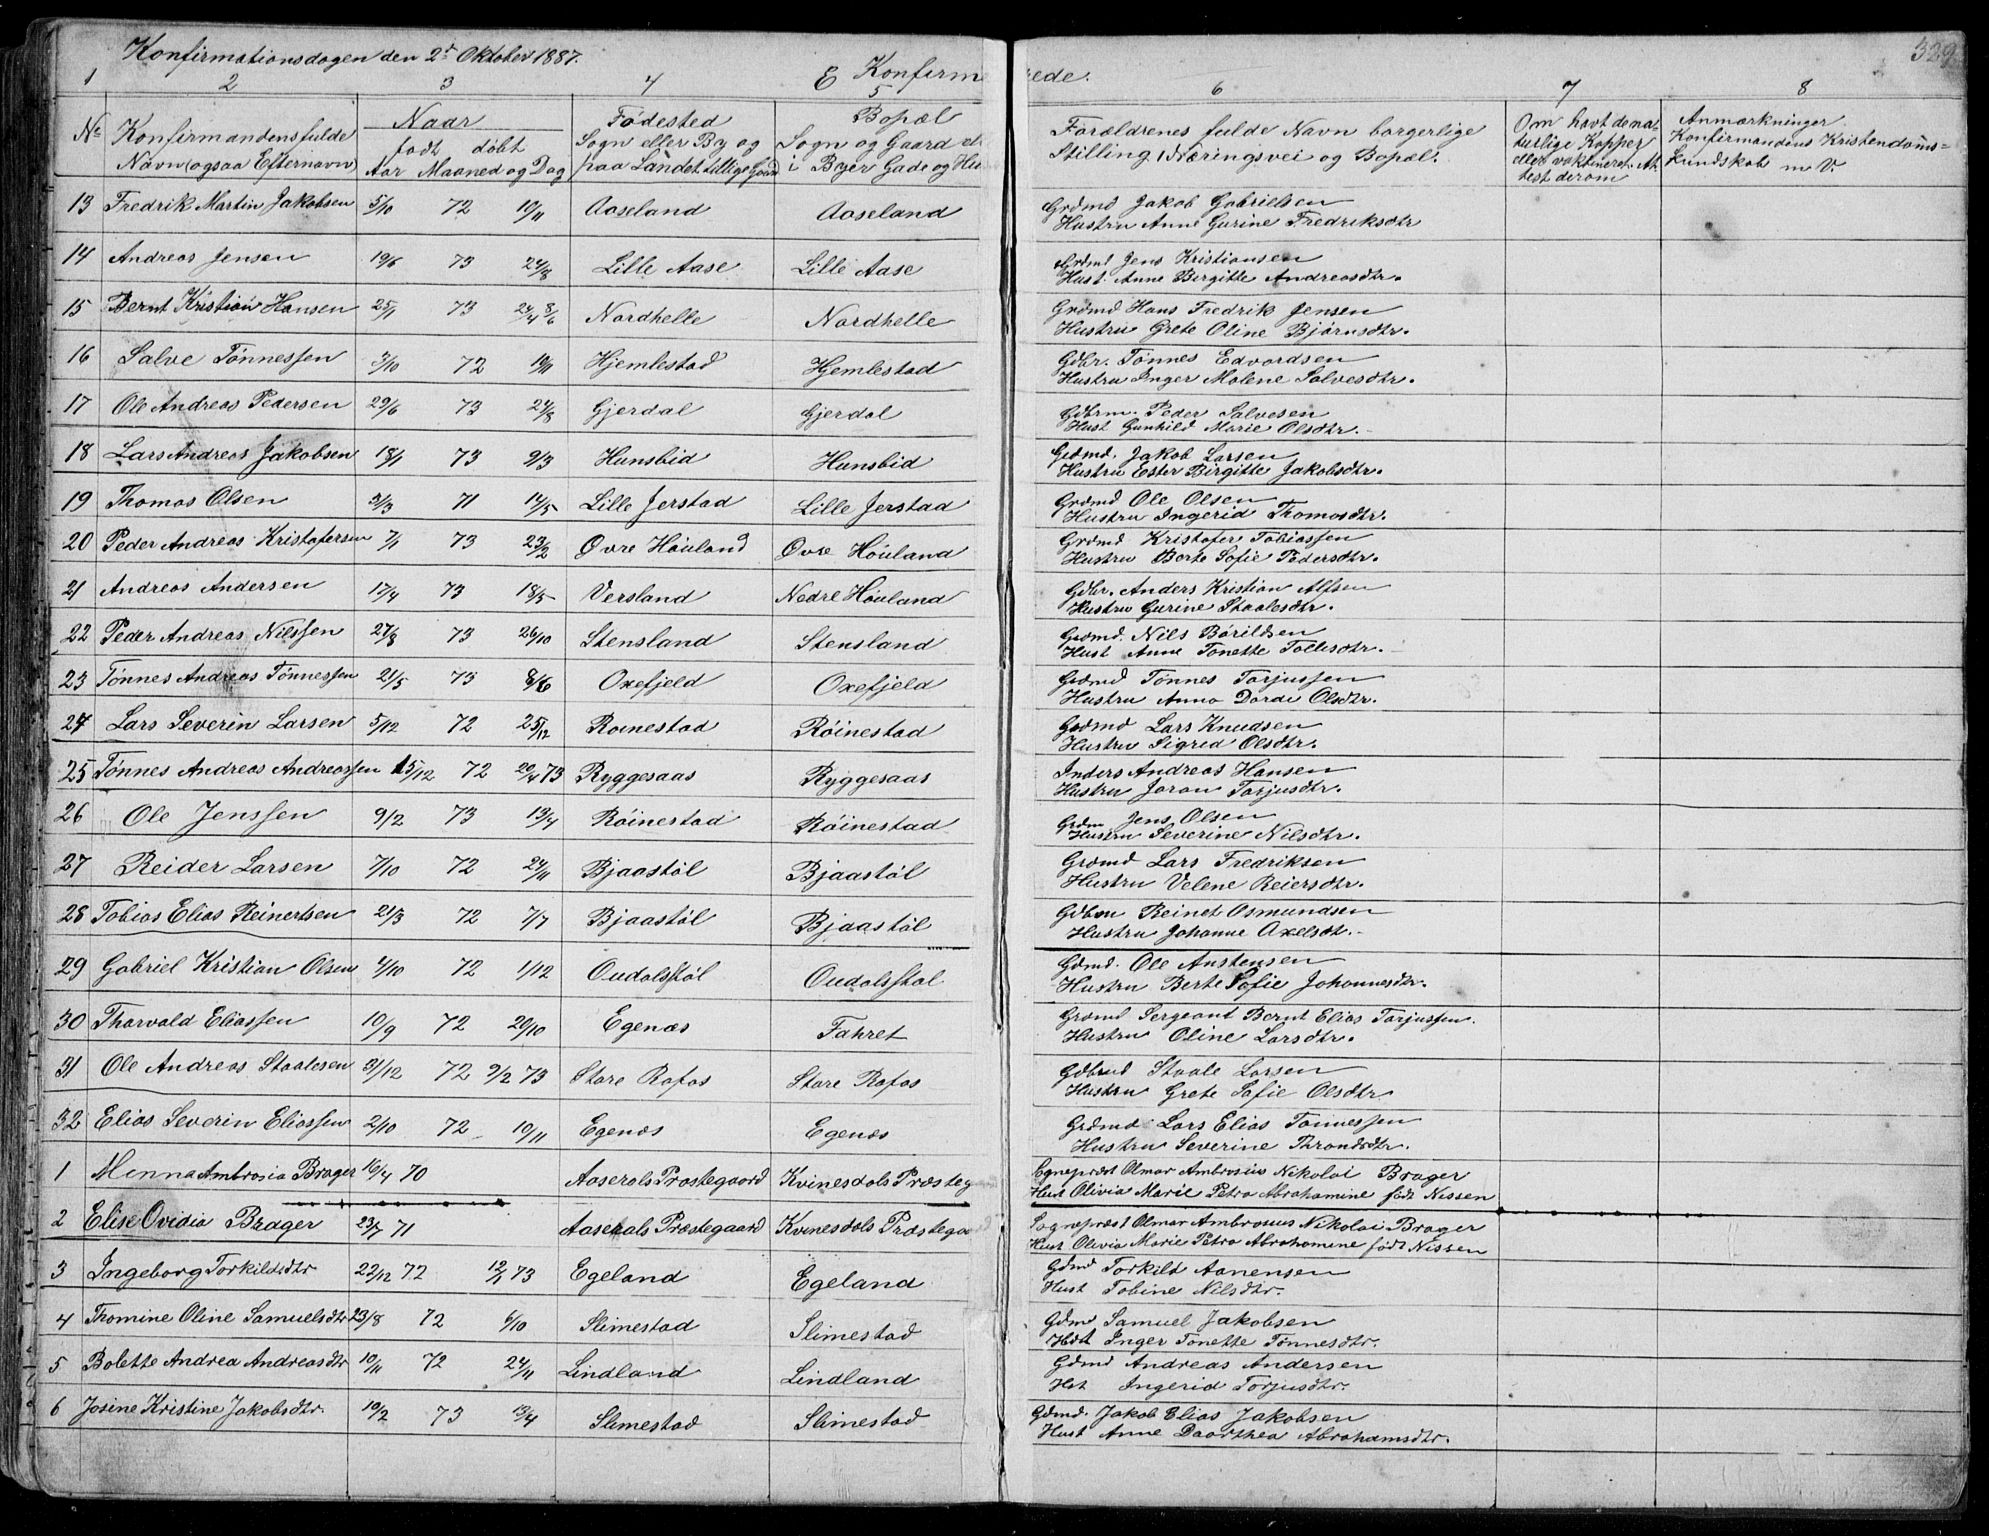 Konfirmationsdagen den 2d Oktober 1887.
E Konfirmerede.
329
1 2 3 4 5 6 7 8
No Konfirmandens fulde Navn (ogsaa Efternavn)
Naar født døbt Aar Maaned og Dag
Fødested Sogn eller By og paa Landet tillige Gaard
Bopæl Sogn og Gaard i Byer Gade og
Forældrenes fulde Navn borgerlige Stilling, Næringsvei og Bopæl.
Om havt de naturlige Kopper eller vaktineret. Attest derom
Anmærkninger. Konfirmandens Kristendoms= kundskab m V.
13 Fredrik Martin Jakobsen 5/10 72 10/11 Aaseland Aaseland Grdmd Jakob Gabrielsen
Hustru Anne Gurine Fredriksdtr
14 Andreas Jensen 19/6 73 24/8 Lille Aase Lille Aase Grdmd Jens Kristiansen
Hust. Anne Birgitte Andreasdtr.
15 Bernt Kristian Hansen 25/1 73 24/4 8/6 Nordhelle Nordhelle Grdmd Hans Fredrik Jensen
Hustru Grete Oline Bjørnsdtr.
16 Salve Tønnessen 3/10 72 10/11 Hjemlestad Hjemlestad Gdbr. Tønnes Edvardsen
Hustru Inger Malene Salvesdtr.
17 Ole Andreas Pedersen 29/6 73 24/8 Gjerdal Gjerdal Gdbrm. Peder Salvesen
Hust Gunhild Marie Olsdtr.
18 Lars Andreas Jakobsen 18/1 73 9/3 Hunsbid Hunsbid Grdmd. Jakob Larsen
Hustru Ester Birgitte Jakobsdtr.
19 Thomas Olsen 3/3 71 14/5 Lille Jerstad Lille Jerstad Grdmd Ole Olsen
Hustru Ingerid Thomasdtr.
20 Peder Andreas Kristofersen 7/1 73 23/2 Øvre Høuland Øvre Høuland Grdmd Kristofer Tobiassen
Hustru Berte Sofie Pedersdtr.
21 Andreas Andersen 17/4 73 18/5 Versland Nedre Høuland Gdbr. Anders Kristian Alfsen
Hustru Gurine Staalesdtr.
22 Peder Andreas Nilssen 27/8 73 26/10 Stensland Stensland Grdmd. Nils Bårildsen
Hust Anne Tonette Tollisdtr.
23 Tønnes Andreas Tønnessen 21/5 73 8/6 Oxefjeld Oxefjeld Grdmd Tønnes Tarjussen
Hustru Anna Dorde Olsdtr.
24 Lars Severin Larsen 5/12 72 25/12 Røinestad Røinestad Grdmd Lars Knudsen
Hustru Sigrid Olsdtr.
25 Tønnes Andreas Andreassen 15/12 72 20/4 73 Ryggesaas Ryggesaas Inders Andreas Hansen
Hustru Joran Tarjusdtr.
26 Ole Jenssen 9/2 73 13/4 Røinestad Røinestad Grdm Jens Olsen
Hustru Severine Nilsdtr.
27 Reider Larsen 7/10 72 24/11 Bjaastøl Bjaastøl Grdmd Lars Fredriksen
Hustru Velene Reiersdtr.
28 Tobias Elias Reinertsen 21/3 72 7/7 Bjaastøl Bjaastøl Gdbm Reinet Osmundsen
Hustru Johanne Axelsdt.
29 Gabriel Kristian Olsen 4/10 72 1/12 Oudalsstøl Oudalsstøl Gdmd. Ole Anstensen
Hustru Berte Sofie Johannesdtr.
30 Tharvald Eliassen 10/9 72 20/10 Egenæs Fahret Grdmd Sergeant Bernt Elias Tarjussen.
Hustru Oline Larsdtr.
31 Ole Andreas Staalesen 31/12 72 9/2 73 Store Rafos Store Rafos Gdbmd Staale Larsen
Hustru Grete Sofie Olsdtr
32 Elias Severin Eliassen 2/10 72 10/11 Egenæs Egenæs Grdmd Lars Elias Tønnessen
Hustru Severine Throndsdtr.
1 Minna Ambrosia Brager 16/4 70 Aaserals Prestegaard Kvinesdals Præsteg Sognepræst Olmar Ambrosius Nikolai Brager
Hust Olivia Marie Petra Abrahamine født Nissen
2 Elise Ovidia Brager 23/7 71 Aaserals Præstegaard Kvinesdals Præstegaard Sognepræst Olmar Ambrosius Nikolai Brager
Hust Olivia Marie Petra Abrahamine født Nissen
3 Ingeborg Torkildsdtr 22/12 72 12/1 73 Egeland Egeland Gdmd Torkild Aanensen
Hust Tobine Nilsdtr.
4 Thomine Oline Samuelsdtr 23/8 72 6/10 Slimestad Slimestad Gdmd Samuel Jakobsen
Hust Inger Tonette Tønnesdtr.
5 Bolette Andrea Andreasdtr 10/11 72 24/11 Lindland Lindland Gdmd Andreas Andersen
Hst Ingerid Torjusdtr.
6 Josine Kristine Jakobsdtr. 10/2 73 13/4 Slimestad Slimestad Gdmd. Jakob Elias Jakobsen
Hust Anne Daarthea Abrahamsdtr.